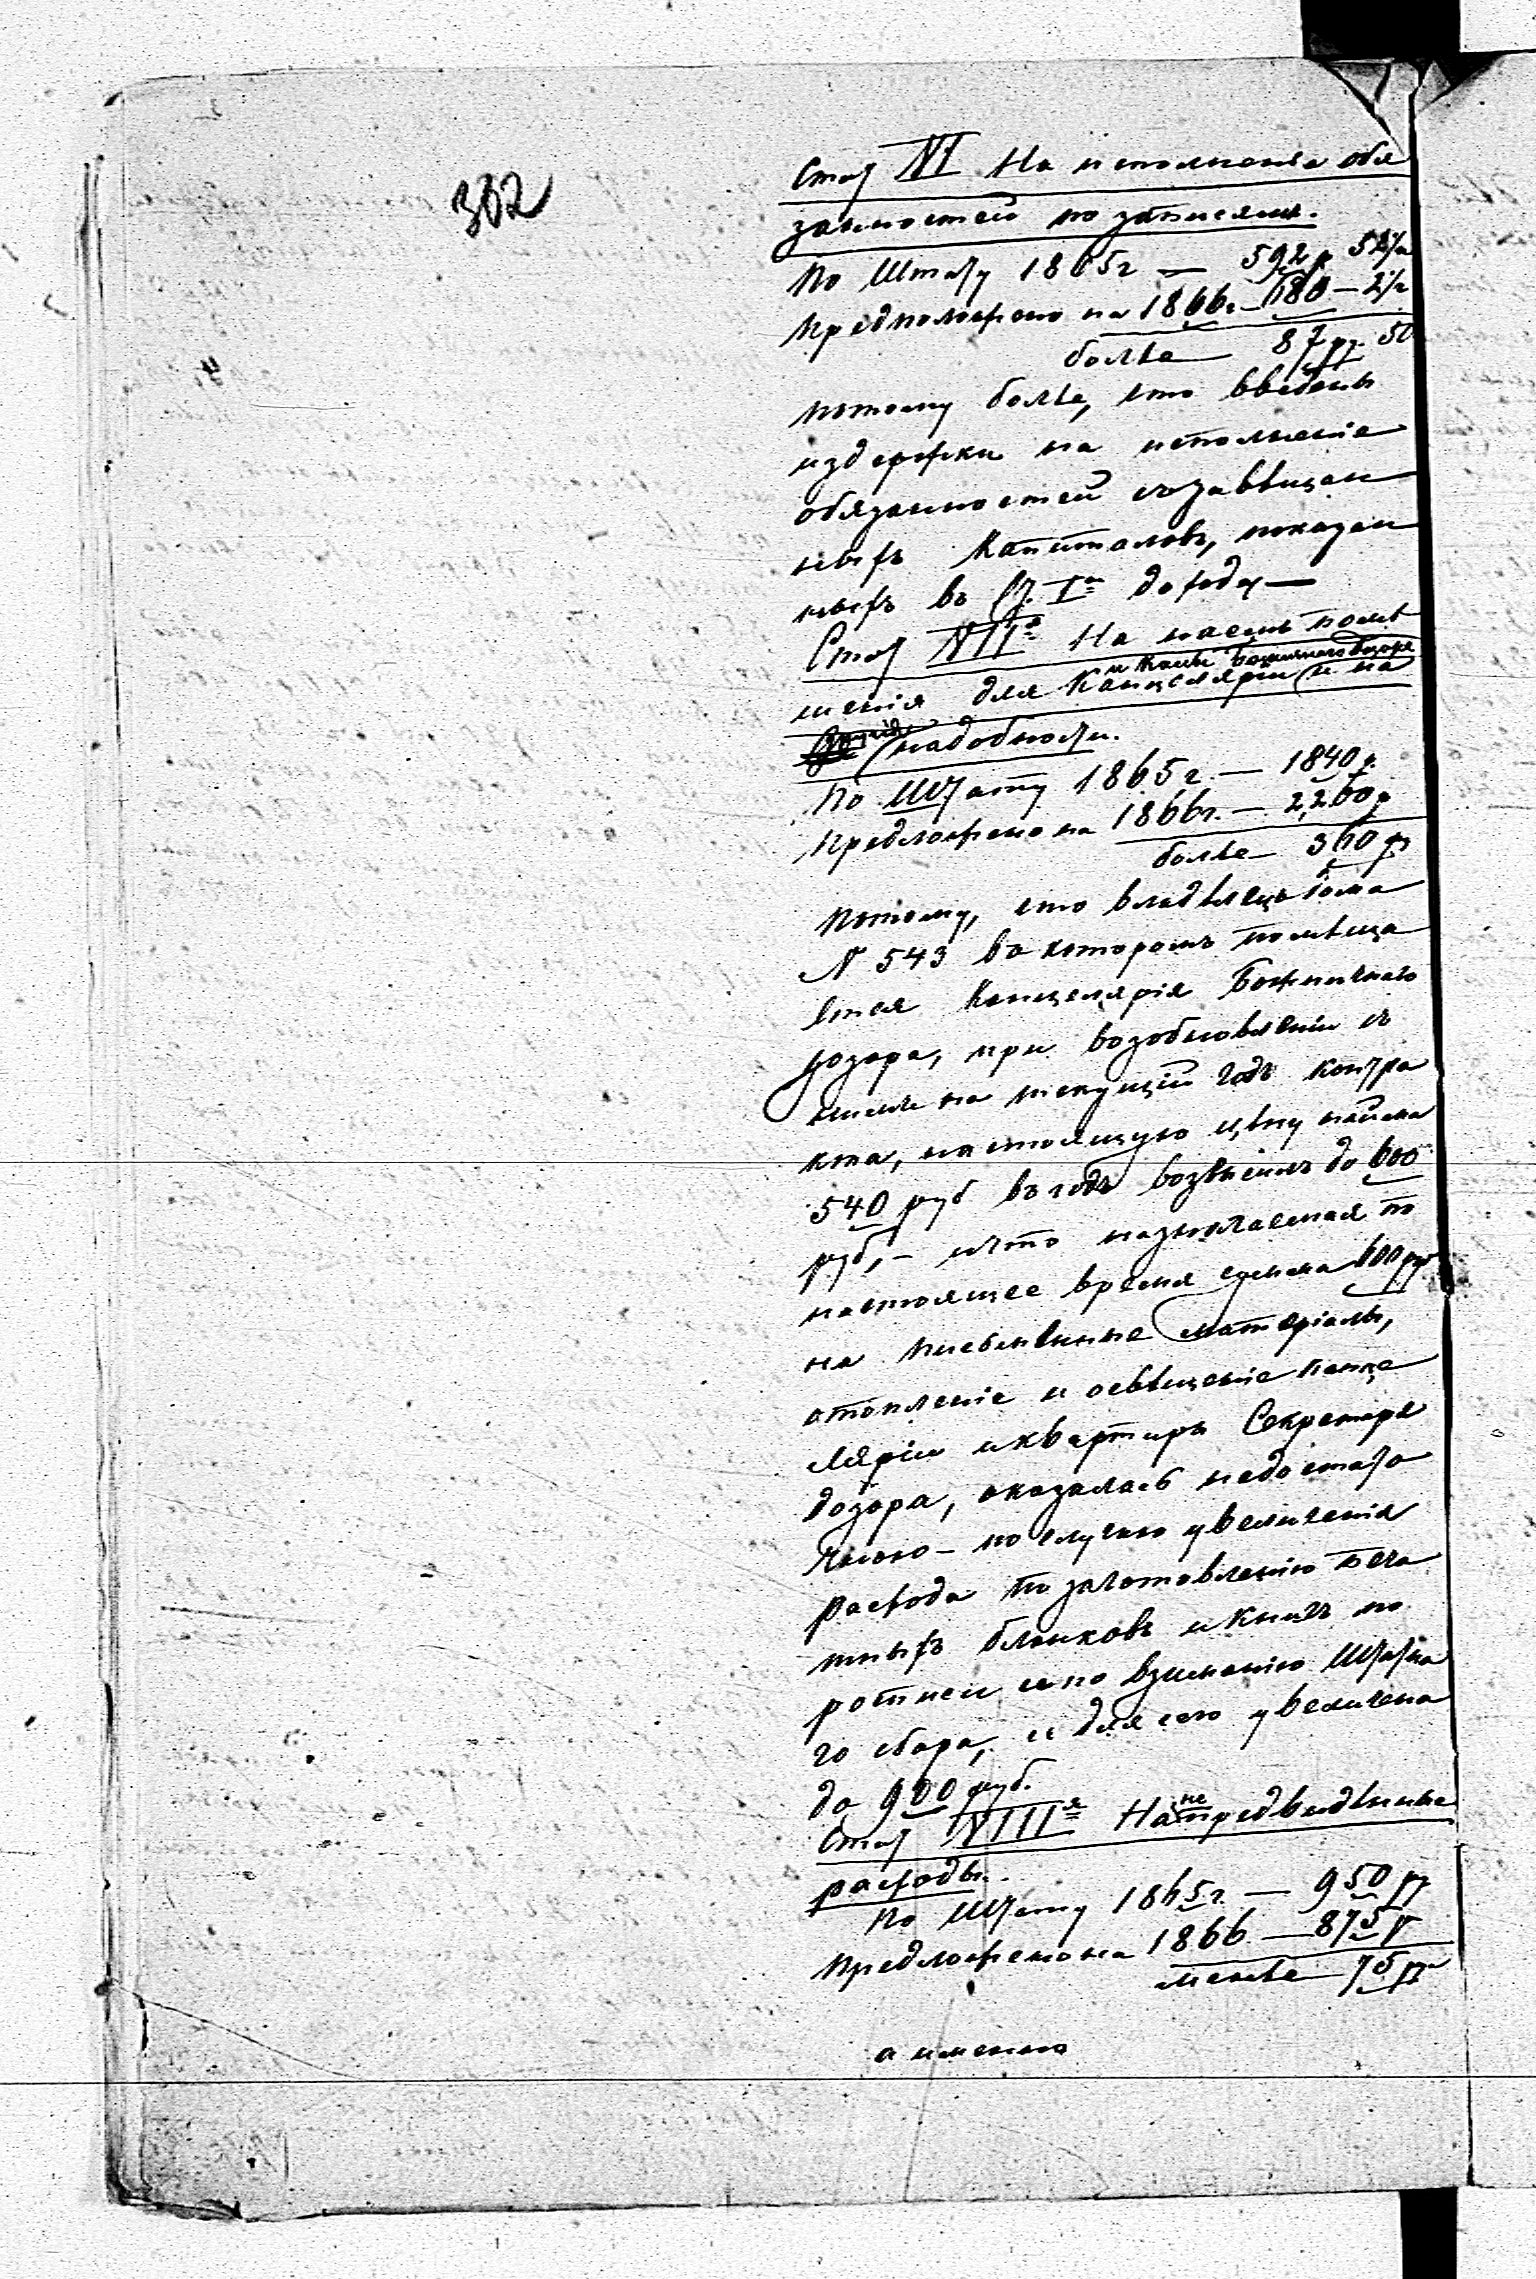 302
Стат VI На исполнения обя
занностей по записямъ.
По Штату 1865 г — 592 р 52½
Предположено на 1866 г — 680 — 2½
болѣе — 87 р. 50
потому болѣе, что введены
издержки на исполненіе
обязанностей съ завѣщан
ныхъ Капиталовъ, показан
ныхъ въ Ст. Iй доходу —
Стат VIIя На наемъ помѣ
и Касы Божничнаго Дозора
щенія для Канцеляріи и на
надобности.
По Штату 1865 г. — 1840 р.
Предложено на 1866 г. — 2,200 р
болѣе — 360 р
Потому, что владѣлецъ дома
N 543 въ которомъ помѣща
ется Канцелярія Божничнаго
дозора, при возобновленіи съ
нимъ на текущій годъ контра
кта, настоящую цѣну найма
540 руб въ годъ возвысилъ до 600
руб, — и что назначаемая по
настоящее время сумма 600 ру
на письменные матеріалы,
отопленіе и освѣщеніе канце
ляріи и квартиры Секретаря
дозора, оказалась недостато
чною — по случаю увеличенія
расхода по заготовленію печа
тныхъ бланковъ и книгъ по
росписи и по взиманію Штатна
го сбора, и для сего увеличена
до 900 руб.
Стат VIIIя На не предвидѣнные
расходы.
По Штату 1865 г. — 950 р
Предложено на 1866 — 875 р
менѣе — 75 р
а именно